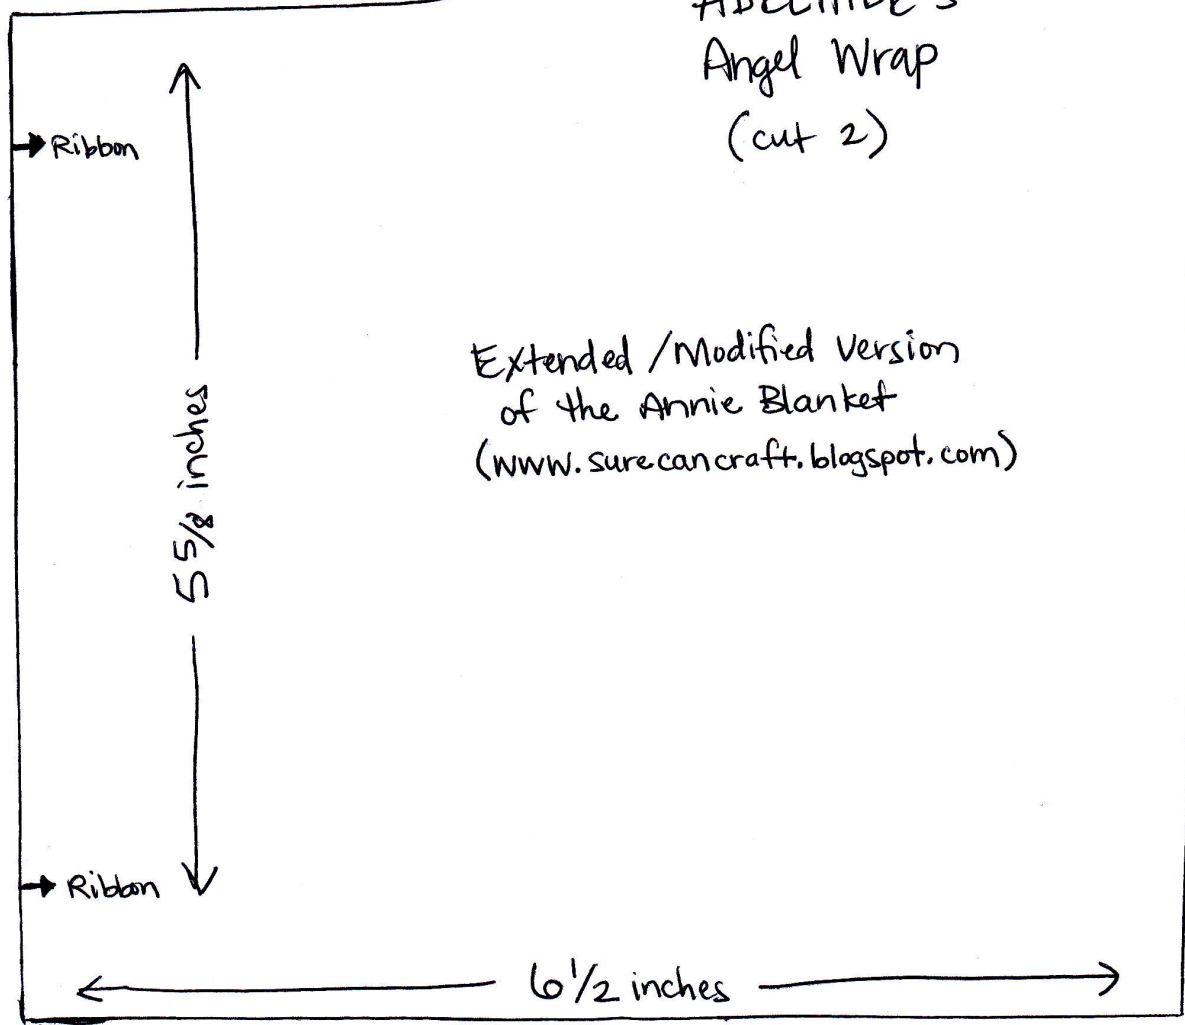 Angel Wrap
(cut 2)
Ribbon
Extended/Modified Version
of the Annie Blanket
(www.surecancraft.blogspot.com)
5 5/8 inches
Ribbon
6 1/2 inches